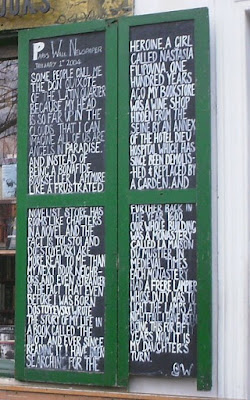 OOKS
PARIS WALL NEWSPAPER
JANUARY 1ST 2004
SOME PEOPLE CALL ME
THE DON QUIXOTE
OF THE LATIN QUARTER
BECAUSE MY HEAD
IS SO FAR UP IN THE
CLOUDS THAT I CAN
IMAGINE ALL OF US ARE
ANGELS IN PARADISE
AND INSTEAD OF
BEING A BONAFIDE
BOOKSELLER I AM MORE
LIKE A FRUSTRATED
NOVELIST STORE HAS
ROOMS LIKE CHAPTERS
IN A NOVEL AND THE
FACT IS TOLSTOI AND
DOSTOYEVSKY ARE
MORE REAL TO ME THAN
MY NEXT DOOR NEIGHB-
ORS AND EVEN STRANGER
IS THE FACT THAT EVEN
BEFORE I WAS BORN
DOSTOYEVSKY WROTE
THE STORY OF MY LIFE IN
A BOOK CALLED THE
IDIOT AND EVER SINCE
READING IT I HAVE BEEN
SEARCHING FOR THE
HEROINE A GIRL
CALLED NASTASIA
FILIPOVNA ONE
HUNDRED YEARS
AGO MY BOOKSTORE
WAS A WINE SHOP
HIDDEN FROM THE
SEINE BY AN ANNEX
OF THE HOTEL DIEU
HOSPITAL WHICH HAS
SINCE BEEN DEMOLISH-
HED & REPLACED BY
A GARDEN AND
FURTHER BACK IN
THE YEAR 1600
OUR WHOLE BUILDING
WAS A MONASTERY
CALLED LA MAISON
DU MUSTIER IN
MEDIEVAL TIMES
EACH MONASTERY
HAD A FRERE LAMPIER
WHOSE DUTY WAS TO
LIGHT THE LAMPS AT
NIGHTFALL I HAVE BEEN
DOING THIS FOR FIFTY
YEARS NOW IT IS
MY DAUGHTER'S
TURN.
GW